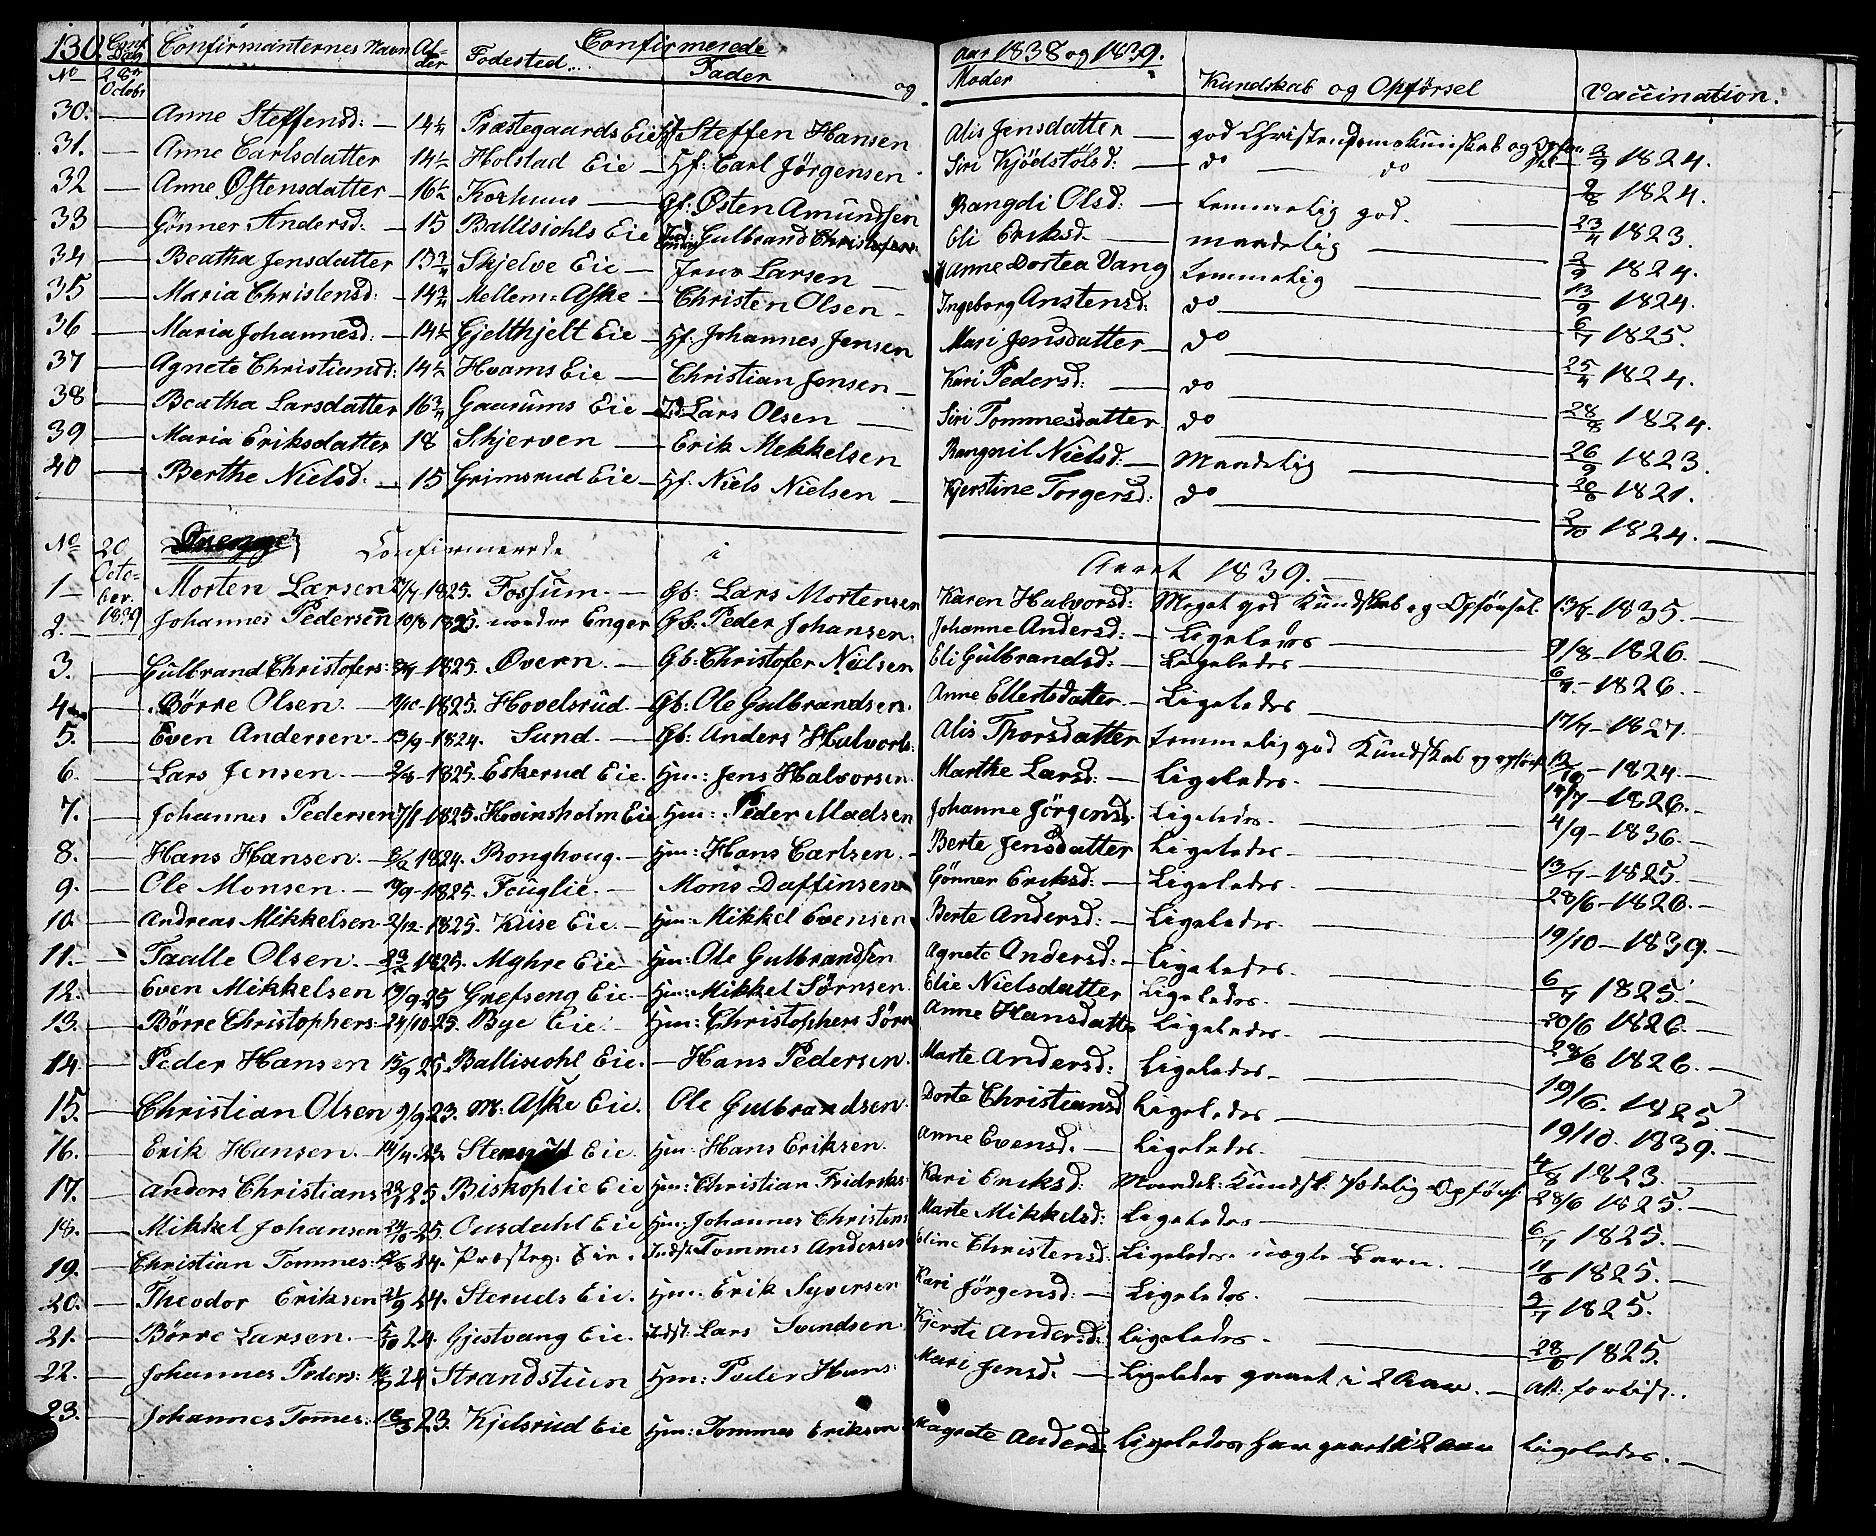 130. Conf. Dag Confirmanternes Navn Alder Fødested. Confirmerede Fader og aar 1838 og 1839. Moder Kundskab og Opførsel Vaccination.
No 28de Octobr
30. Anne Steffensd: 14½ Præstegaards Eie Hf Steffen Hansen Alis Jensdatter god Christendomskundskab og Opførsel 3/9 1824.
31. Anne Carlsdatter 14½ Holstad Eie Hf: Carl Jörgensen Siri Kjödstölsd: do do 2/8 1824.
32 Anne Østensdatter 16½ Korhuus Gf: Østen Amundsen Rangdi Olsd: temmelig god. 23/4 1823.
33 Gönner Andersd. 15 Ballisiohls Eie Gulbrand Christofers Eli Eriksd. maadelig 2/9 1824.
34 Beatha Jensdatter 13¾ Skjelve Eie Jens Larsen Anne Dortea Vang temmelig 13/9 1824.
35 Maria Christensd: 14¾ Mellem-Aske Christen Olsen Ingeborg Anstensd: do 6/7 1825.
36 Maria Johannesd: 14½ Gjelthjelt Eie Hf: Johannes Jensen Mari Jensdatter do 25/4 1824.
37 Agnete Christiansd: 14½ Hvams Eie Christian Jensen Kari Pedersd: do 28/8 1824.
38 Beatha Larsdatter 16¾ Gaarums Eie Lars Olsen Siri Tommesdatter do 26/9 1823.
39 Maria Eriksdatter 18 Skjerven Erik Mekkelsen Rangnil Nielsd: Maadelig 1821.
40 Berthe Nielsd. 15 Grimsrud Eie Hf: Niels Nielsen Kjerstine Torgersd: do 2/10 1824.
No 20 October 1839 Drenge Confirmerede i Aaret 1839.
1 Morten Larsen 1825. Fossum. Gb: Lars Mortensen Karen Halvorsd: Meget god Kundskab og Opførsel 1835.
2. Johannes Pedersen 10/8 1825. nordre Enger Gb: Peder Johansen. Johanne Andersd: Ligeledes 9/8-1826.
3. Gulbrand Christofers: 1825. Overn. Gb: Christofer Nielsen Eli Gulbrandsd: Ligeledes 6/7-1826.
4 Börre Olsen. 1825. Hovelsrud. Gb: Ole Gulbrandsen. Anne Ellertsdatter. Ligeledes 17/7-1827.
5. Even Andersen 13/9-1824. Sund. Gb: Anders Halvors: Alis Thorsdatter temmelig god Kundskab og opførsel 1824.
6. Lars Jensen. 2/8-1825. Eskerud Eie. Hm: Jens Halvorsen. Marthe Larsd: Ligeledes. 1826.
7. Johannes Pedersen 7/1-1825. Hovinsholm Eie Hm: Peder Madsen Johanne Jörgensd. Ligeledes. 4/9-1836.
8. Hans Hansen. 1824. Ronghoug. Hm: Hans Carlsen. Berte Jensdatter Ligeledes. 13/7-1825.
9. Ole Monsen. 1825. Fouglie. Mons Daffinsen Gönner Eriksd: Ligeledes. 28/6-1826.
10. Andreas Mikkelsen 2/12-1825. Kiise Eie. Hm: Mikkel Evensen Berte Andersd: Ligeledes. 19/10-1839.
11. Taalle Olsen. 1825. Myhre Eie Hm: Ole Gulbrandsen Agnete Andersd: Ligeledes. 6/7 1825.
12. Even Mikkelsen 25 Grefseng Eie. Hm: Mikkel Sörnsen. Elie Nielsdatter Ligeledes. 20/6 1826.
13. Börre Christophers: 24/10-25. Bye Eie. Hm: Christophers Sörn Anne Hansdatter Ligeledes. 28/6 1826.
14. Peder Hansen 15/9 25 Ballisiohl Eie. Hans Pedersen. Marte Andersd: Ligeledes 19/6. 1825.
15. Christian Olsen 9/9 23. M: Aske Eie. Ole Gulbrandsen. Dorte Christiansd Ligeledes 19/10. 1839.
16. Erik Hansen. 14/4. 23. Eie. Hm: Hans Eriksen. Anne Evensd. Ligeledes. 4/8 1823.
17. Anders Christians 25 Biskoplie Eie Hm: Christian Fridriks: Kari Eriksd: Maadel: Kundsk: sædelig Opførs: 28/6 1825.
18. Mikkel Johansen 25. Ousdahl Eie Hm: Johannes Christens Marte Mikkelsd: Ligeledes 6/7 1825.
19. Christian Tommes: 24. Præsteg: Eie. Tommes Andersen Eline Christensd: Ligeledes. uægte Barn. 11/8 1825.
20. Theodor Eriksen 21/9 24. Steruds Eie. Hm: Erik Syversen Kari Jörgensd: Ligeledes. 1825.
21. Börre Larsen. 5/10 24. Gjestvang Eie. Lars Svendsen Kjersti Andersd: Ligeledes. 28/6 1825.
22. Johannes Peders: 24 Strandstuen Hm: Peder Hans: Mari Jensd. Ligeledes gaaet i 2 Aar. Att: forlist.
23. Johannes Tommes: 23. Kjelsrud Eie Hm: Tommes Eriksen Magnete Andersd Ligeledes, har gaaet i 2 Aar Ligeledes.